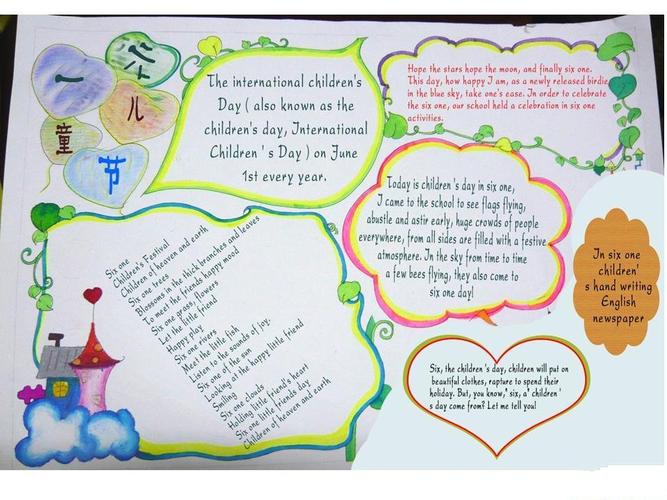 六
一
儿
童
节
The international children's
Day ( also known as the
children's day, International
Children ' s Day ) on June
1st every year.
Hope the stars hope the moon, and finally six one.
This day, how happy I am, as a newly released birdie
in the blue sky, take one's ease. In order to celebrate
the six one, our school held a celebration in six one
activities.
Today is children's day in six one,
I came to the school to see flags flying,
abustle and astir early, huge crowds of people
everywhere, from all sides are filled with a festive
atmosphere. In the sky from time to time
a few bees flying, they also come to
six one day!
In six one
children'
s hand writing
English
newspaper
Six one
Children's Festival
Children of heaven and earth
Six one trees
Blossoms in the thick branches and leaves
To meet the friends happy mood
Six one grass, flowers
Let the little friend
Happy play
Six one rivers
Meet the little fish
Listen to the sounds of joy.
Six one of the sun
Looking at the happy little friend
Smiling
Six one clouds
Holding little friend's heart
Six one little friends day
Children of heaven and earth
Six, the children 's day, children will put on
beautiful clothes, rapture to spend their
holiday. But, you know,' six, a' children '
s day come from? Let me tell you!